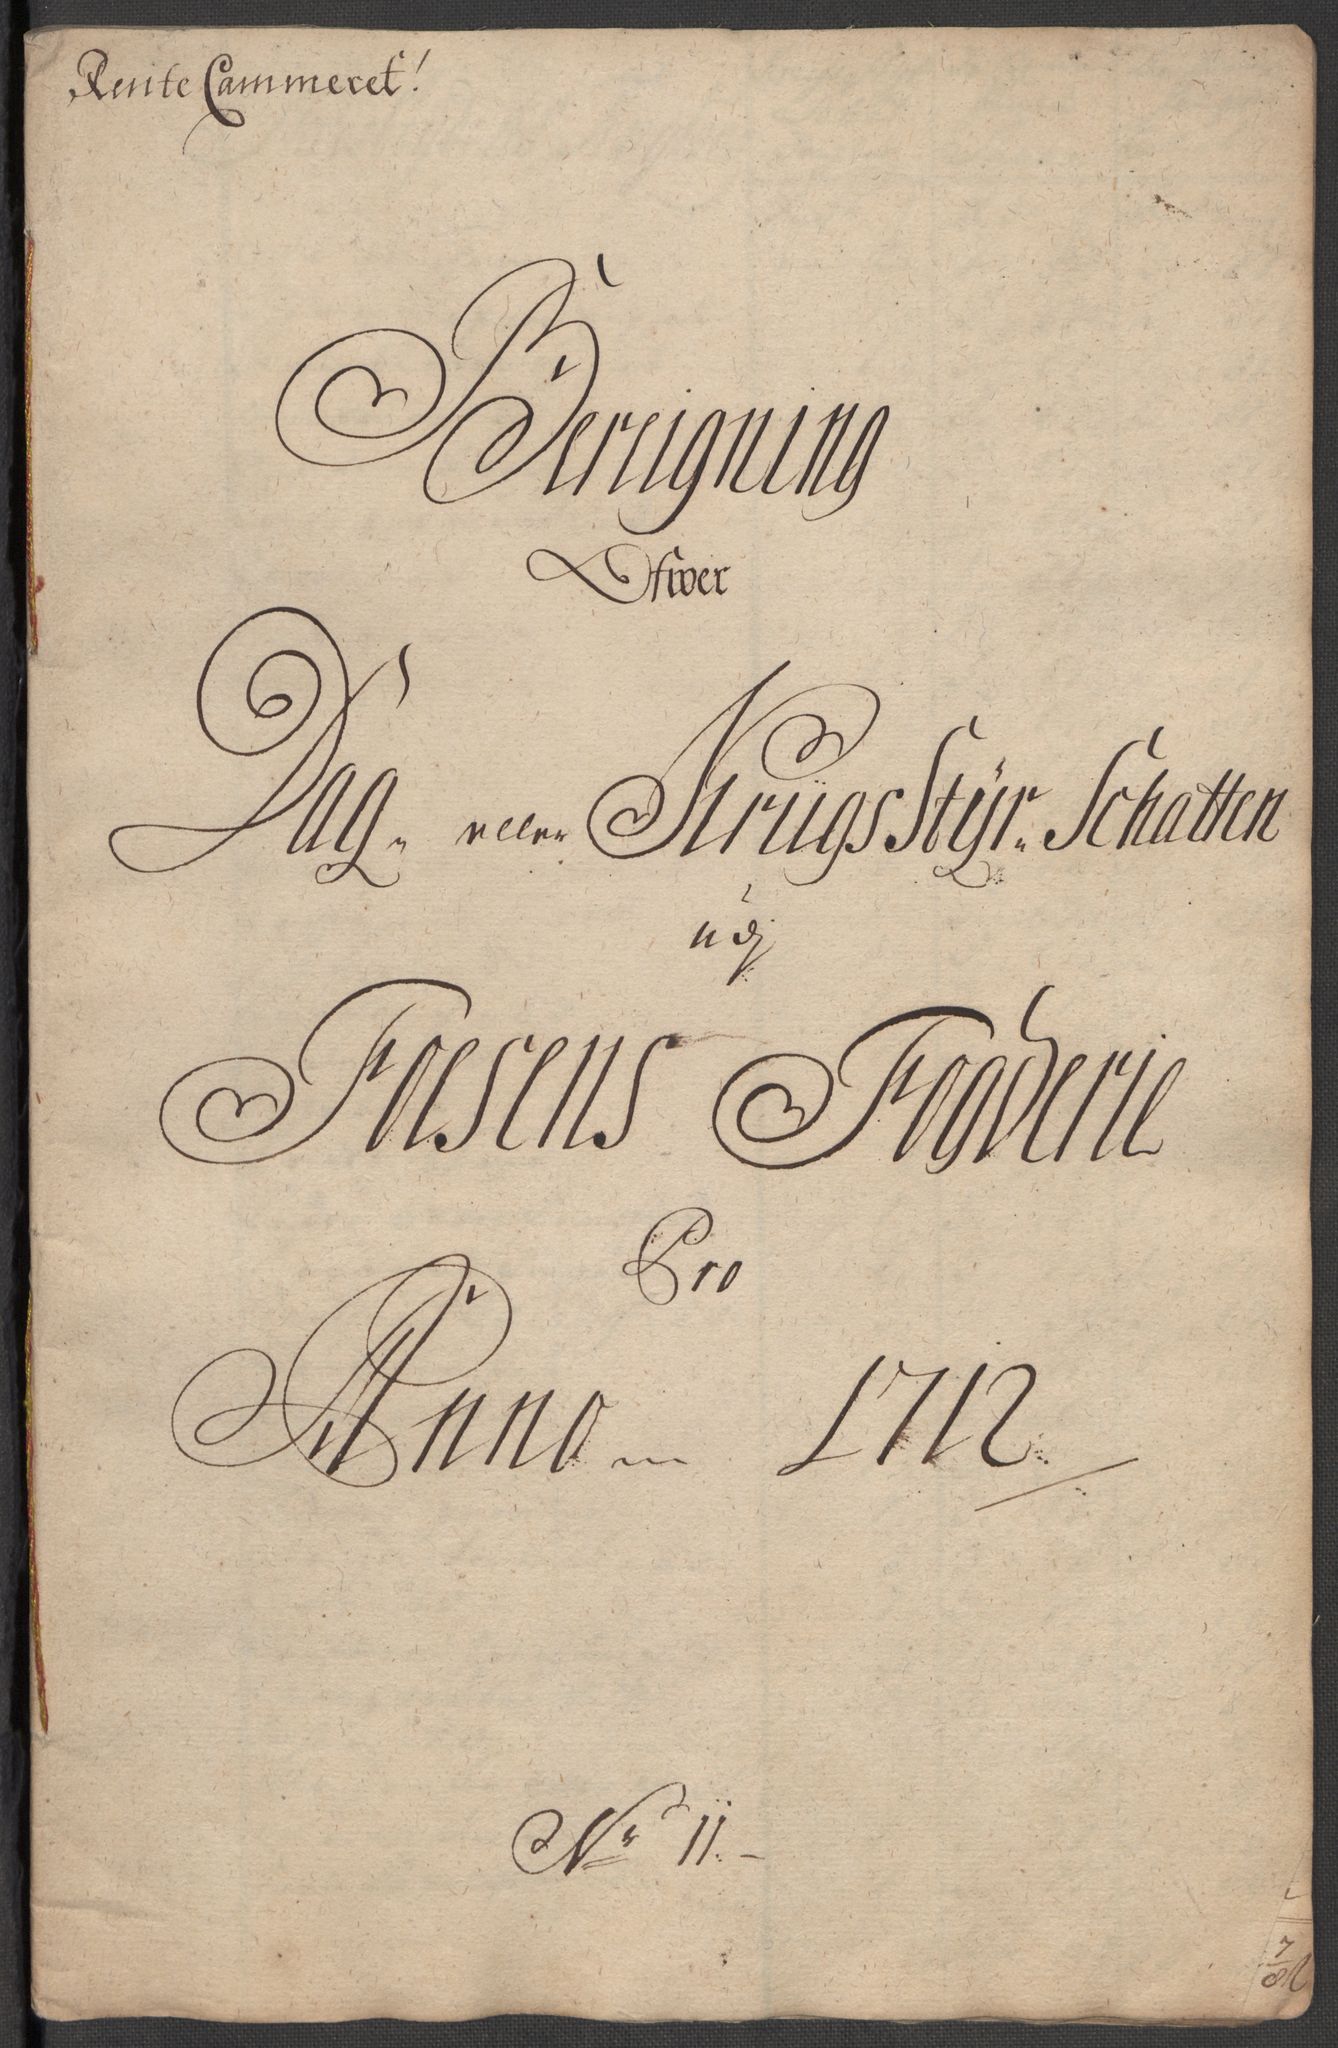 Rente Cammeret!
Bereigning
Ofwer
Dag- eller KrügsStÿr- Schatten
udj
Foesens Fogderie
Pro
Anno 1712
No 11.
7